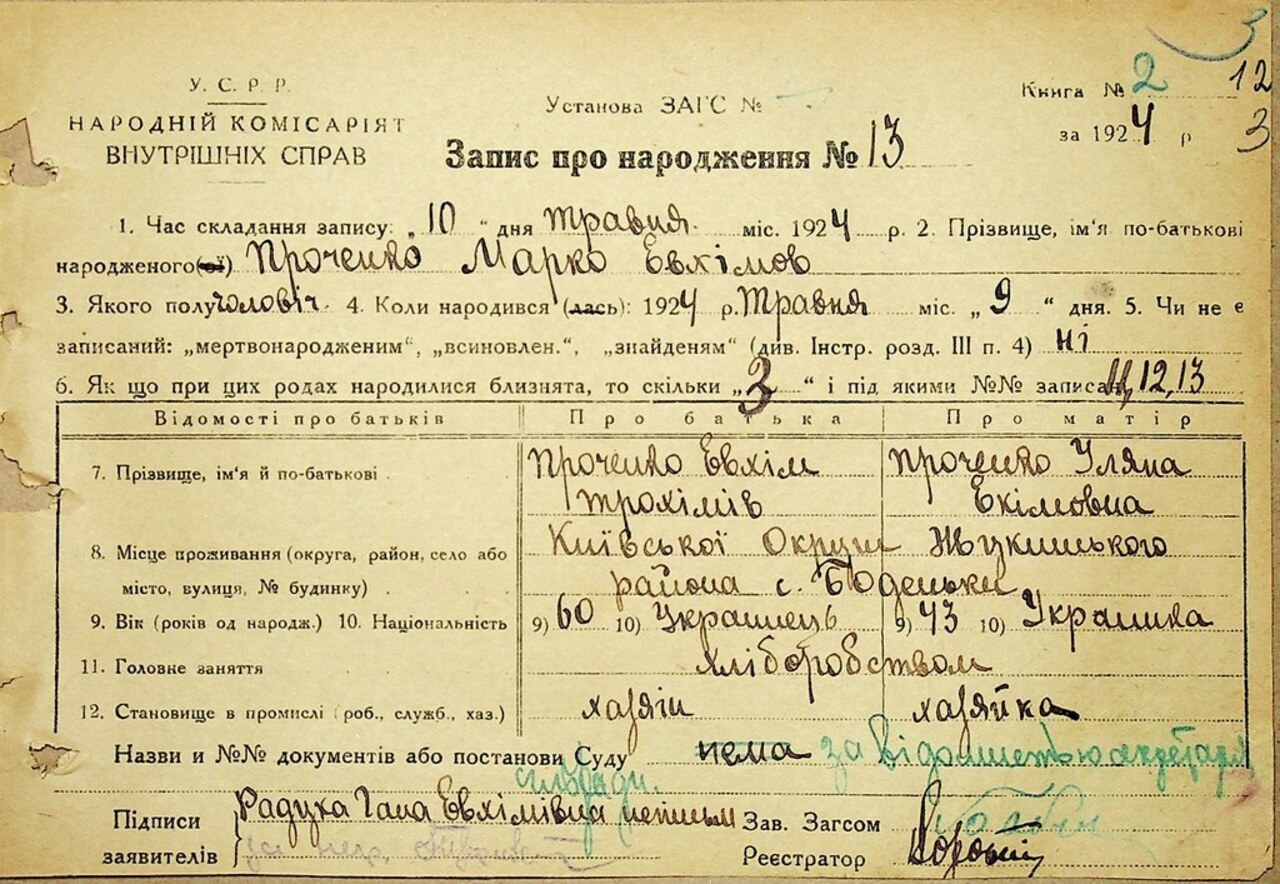 3
У. С. Р. Р.
НАРОДНІЙ КОМІСАРІЯТ
ВНУТРІШНІХ СПРАВ
Установа ЗАГС №
Книга № 2 12
за 1924 р 3
Запис про народження № 13
1. Час складання запису: „10“ дня травня міс. 1924 р. 2. Прізвище, ім'я по-батькові
народженого(ої) Проченко Марко Евхімов
3. Якого полу чоловіч. 4. Коли народився (лась): 1924 р. Травня міс. „9“ дня. 5. Чи не є
записаний: „мертвонародженим“, „всиновлен.“, „знайденям“ (див. Інстр. розд. III п. 4) ні
6. Як що при цих родах народилися близнята, то скільки „3“ і під якими №№ записан 11, 12, 13
Відомості про батьків Про батька Про матір
7. Прізвище, ім'я й по-батькові Проченко Евхім Трохімів Проченко Уляна Екімовна
8. Місце проживання (округа, район, село або місто, вулиця, № будинку) Київської Округи Жукинського района с. Боденьки
9. Вік (років од народж.) 10. Національність 9) 60 10) Українець 9) 43 10) Українка
11. Головне заняття хліборобством
12. Становище в промислі (роб., служб., хаз.) хазяїн хазяйка
Назви и №№ документів або постанови Суду нема за відомістью секретаря
Підписи заявителів Радука Гана Евхімівна неписьм
за неї
Зав. Загсом
Реєстратор